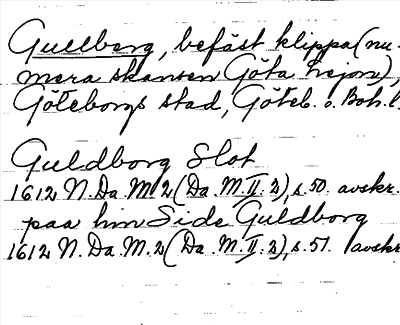 Gullberg, befäst klippa (nu-
mera skansen Göta lejon),
Göteborgs stad, Göteb. o. Boh. l.
Guldborg Slot
1612 N. Da. M. 2 (Da. M. II. 2), s. 50. avskr.
paa hin Side Guldborg
1612 N. Da. M. 2 (Da. M. II. 2), s. 51. avskr